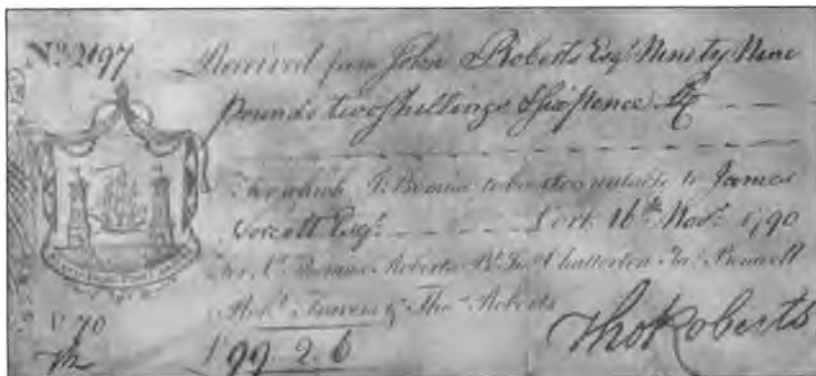 No. 2197 Received from John Roberts Esqr. Ninety Nine
pounds two Shillings & Six pence
For which I Promise to be accountable to James
Esqr. Cork 16th. Novr. 1790
For Sr. Thomas Roberts Bt. Chatterton Bonwell
Robt. Travers & Thos. Roberts
£ 99. 2. 6
Tho Roberts